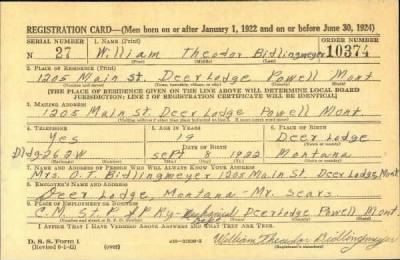 REGISTRATION CARD—(Men born on or after January 1, 1922 and on or before June 30, 1924)
SERIAL NUMBER 1. NAME (Print) ORDER NUMBER
N 27 William Theodor Bidlingmeyer 10374
(First) (Middle) (Last)
2. PLACE OF RESIDENCE (Print)
1205 Main St. Deer Lodge Powell Mont
(Number and street) (Town, township, village, or city) (County) (State)
[THE PLACE OF RESIDENCE GIVEN ON THE LINE ABOVE WILL DETERMINE LOCAL BOARD
JURISDICTION; LINE 2 OF REGISTRATION CERTIFICATE WILL BE IDENTICAL]
3. MAILING ADDRESS
1205 Main St Deer Lodge Powell Mont.
[Mailing address if other than place indicated on line 2. If same insert word same]
4. TELEPHONE 5. AGE IN YEARS 6. PLACE OF BIRTH
Yes 19 Deer Lodge
DATE OF BIRTH (Town or county)
Dldg262W Sept 8 1922 Montana
(Exchange) (Number) (Mo.) (Day) (Yr.) (State or country)
7. NAME AND ADDRESS OF PERSON WHO WILL ALWAYS KNOW YOUR ADDRESS
Mrs. O. T. Bidlingmeyer 1205 Main St. Deer Lodge, Mont
8. EMPLOYER'S NAME AND ADDRESS
Deer Lodge, Montana - Mr. Sears
9. PLACE OF EMPLOYMENT OR BUSINESS
C.M. St. P. & P Ry- Mechanical Deer Lodge Powell Mont.
(Number and street or R. F. D. number) (Town) (County) (State)
I AFFIRM THAT I HAVE VERIFIED ABOVE ANSWERS AND THAT THEY ARE TRUE.
D. S. S. Form 1
(Revised 6-1-42) (over) William Theodor Bidlingmeyer
(Registrant's signature)